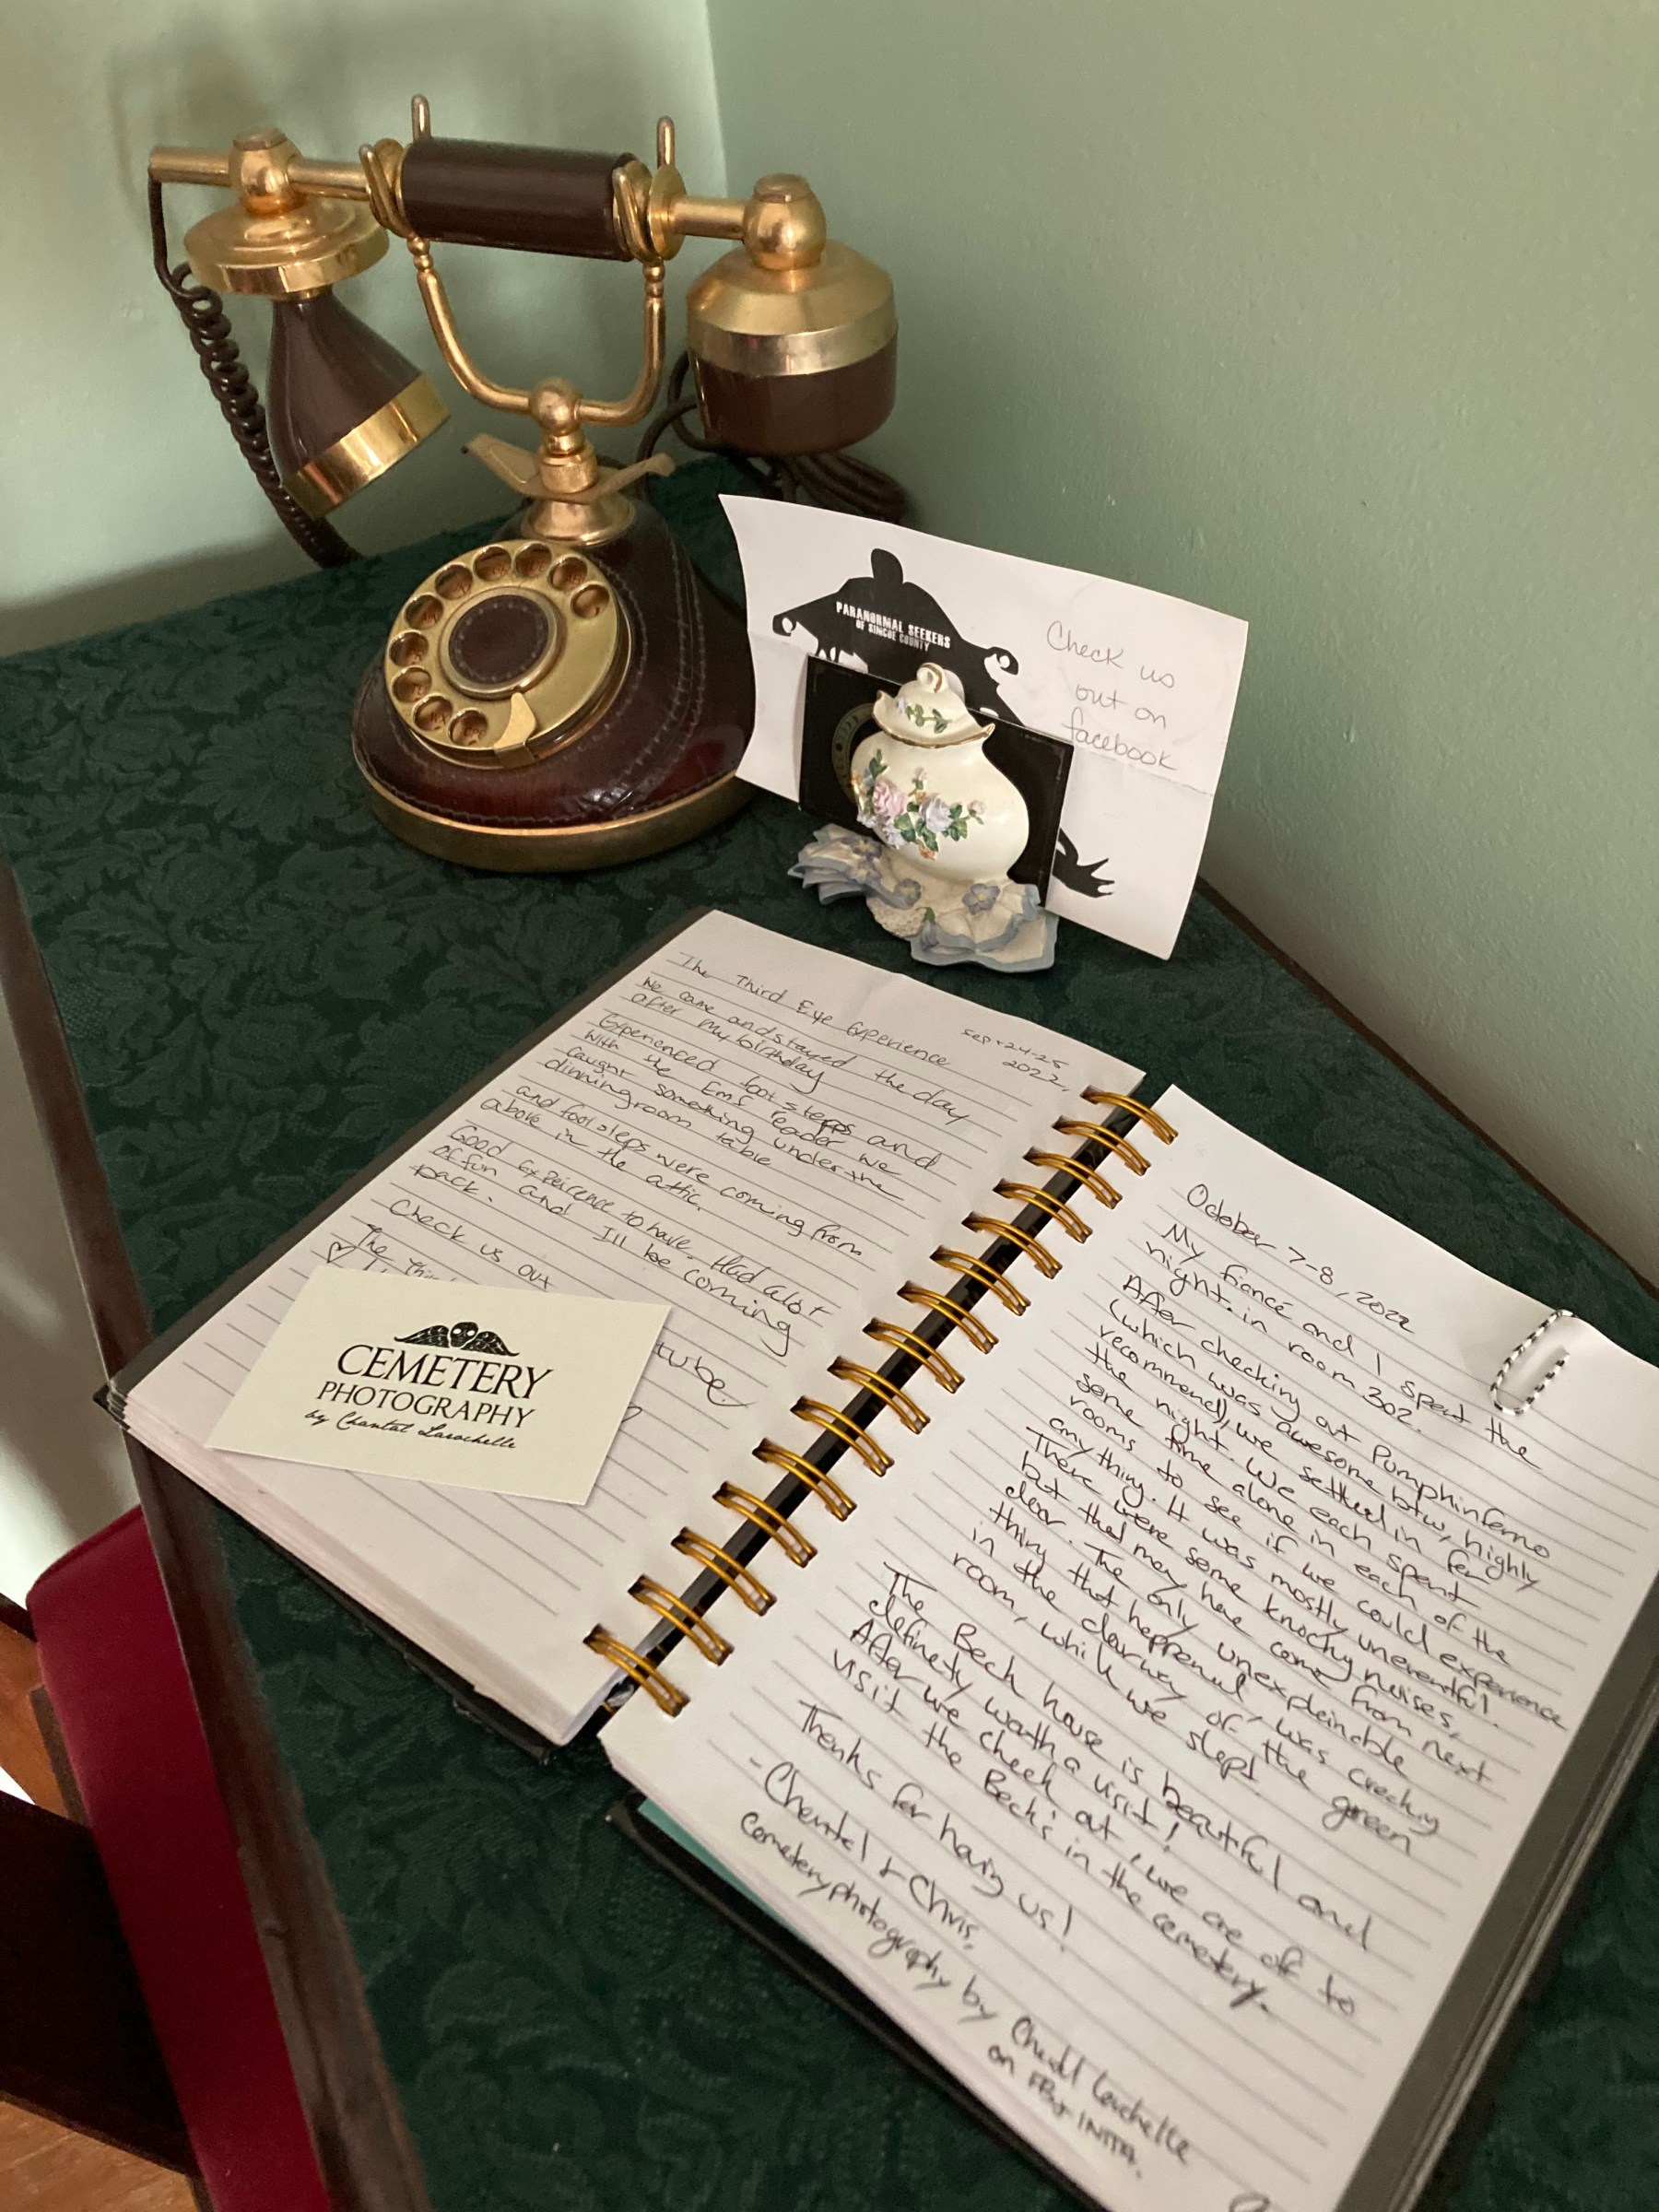 PARANORMAL SEEKERS
OF SIMCOE COUNTY
Check us
out on
facebook
The Third Eye Experience
Sept 24-25
2022,
We came and stayed the day
after my birthday
Experienced foot stepps and
with the Emf reader we
caught something under the
dinning room table
and footsteps were coming from
above in the attic.
Good Expeircence to have. Had alot
of fun and I'll be coming
back.
Check us out
The Thi
tube
CEMETERY
PHOTOGRAPHY
by Chantal Larochelle
October 7-8, 2022
My fiancé and I spent the
night in room 302.
After checking out Pumphinferno
(which was awesome btw, highly
recommend), we settled in for
the night. We each spent
some time alone in each of the
rooms to see if we could experience
anything. It was mostly uneventful.
There were some knocking noises,
but that may have come from next
door. The only unexplainable
thing that happened, was creaking
in the doorway of the green
room, while we slept.
The Beck house is beautiful and
definety worth a visit!
After we check out, we are off to
visit the Beck's in the cemetery.
Thanks for having us!
- Chantal & Chris.
cemetery photography by Chantal Larochelle
on FB + INSTA.